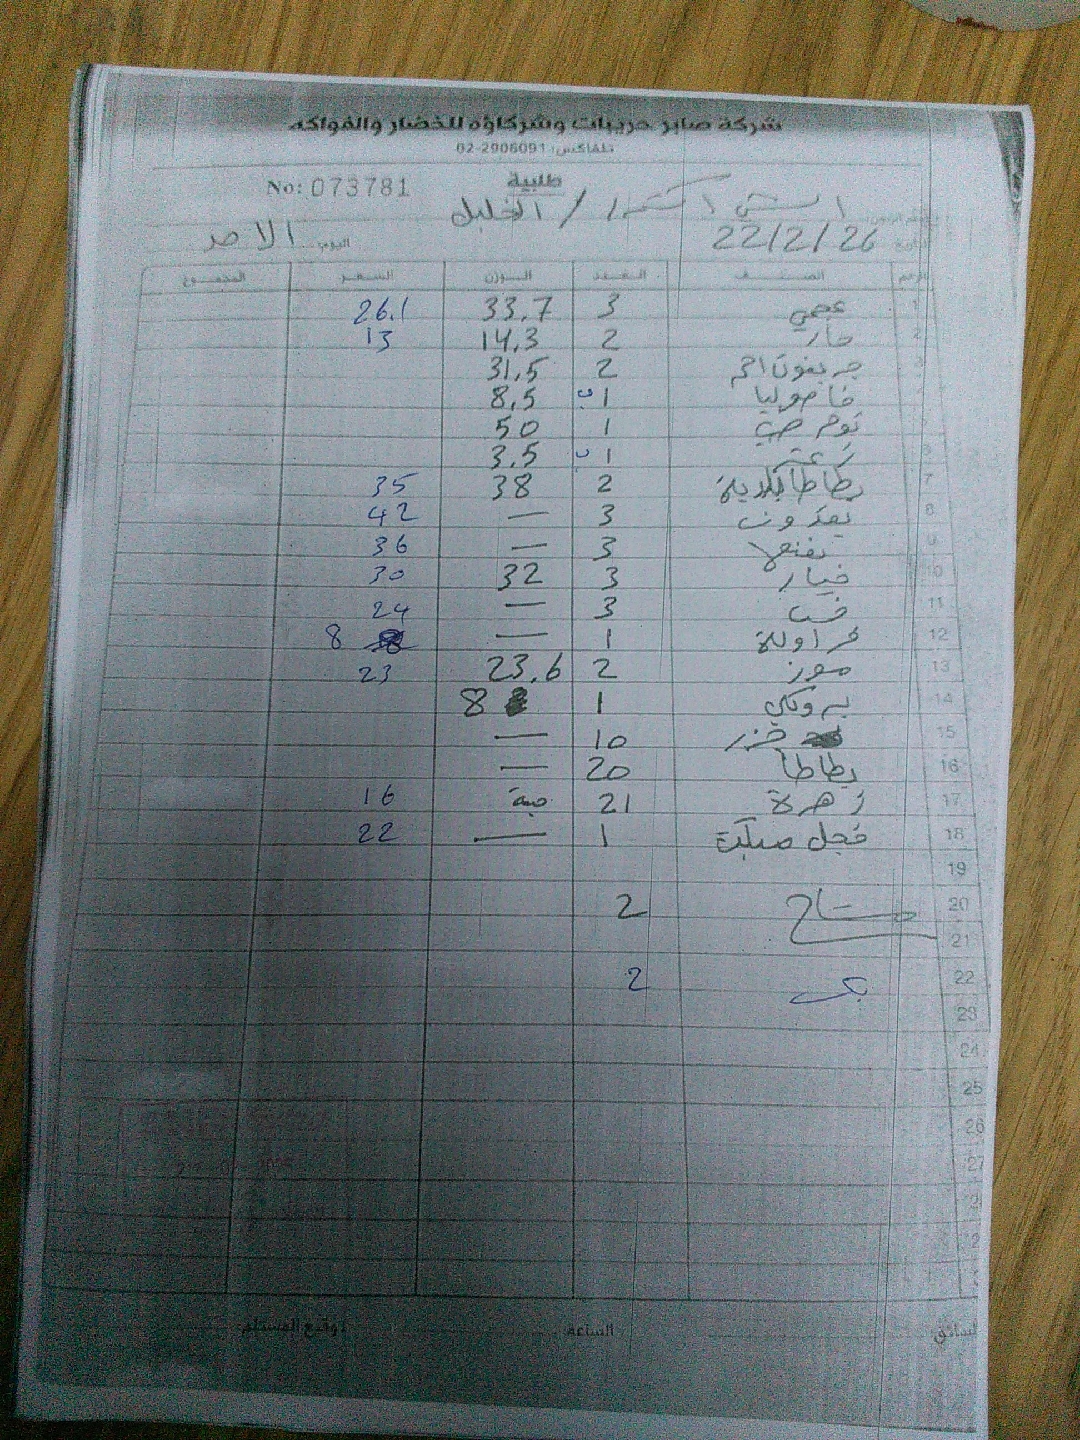 شركة صابر حريبات وشركاؤه للخضار والفواكه
تلفاكس: 02-2906091
No: 073781 طلبية
/ الخليل
التاريخ: 22/2/26 اليوم: الاحد
الرقم الصنف العدد الوزن السعر المجموع
1 عجمي 3 33.7 26.1
2 حار 2 14.3 13
3 جريفوت احمر 2 31.5
فاصوليا 1 ب 8.5
ثوم حب 1 50
6 زعتر 1 ب 3.5
7 بطاطا بلدية 2 38 35
8 بقدونس 3 — 42
9 نعنع 3 — 36
10 خيار 3 32 30
11 خس 3 — 24
12 فراولة 1 — 8
13 موز 2 23.6 23
14 بروكلي 1 8
15 جزر 10 —
16 بطاطا 20 —
17 زهرة 21 حبة 16
18 فجل مبكت 1 — 22
19
20 2
21
22 2
23
24
25
26
27
السائق الساعة توقيع المستلم